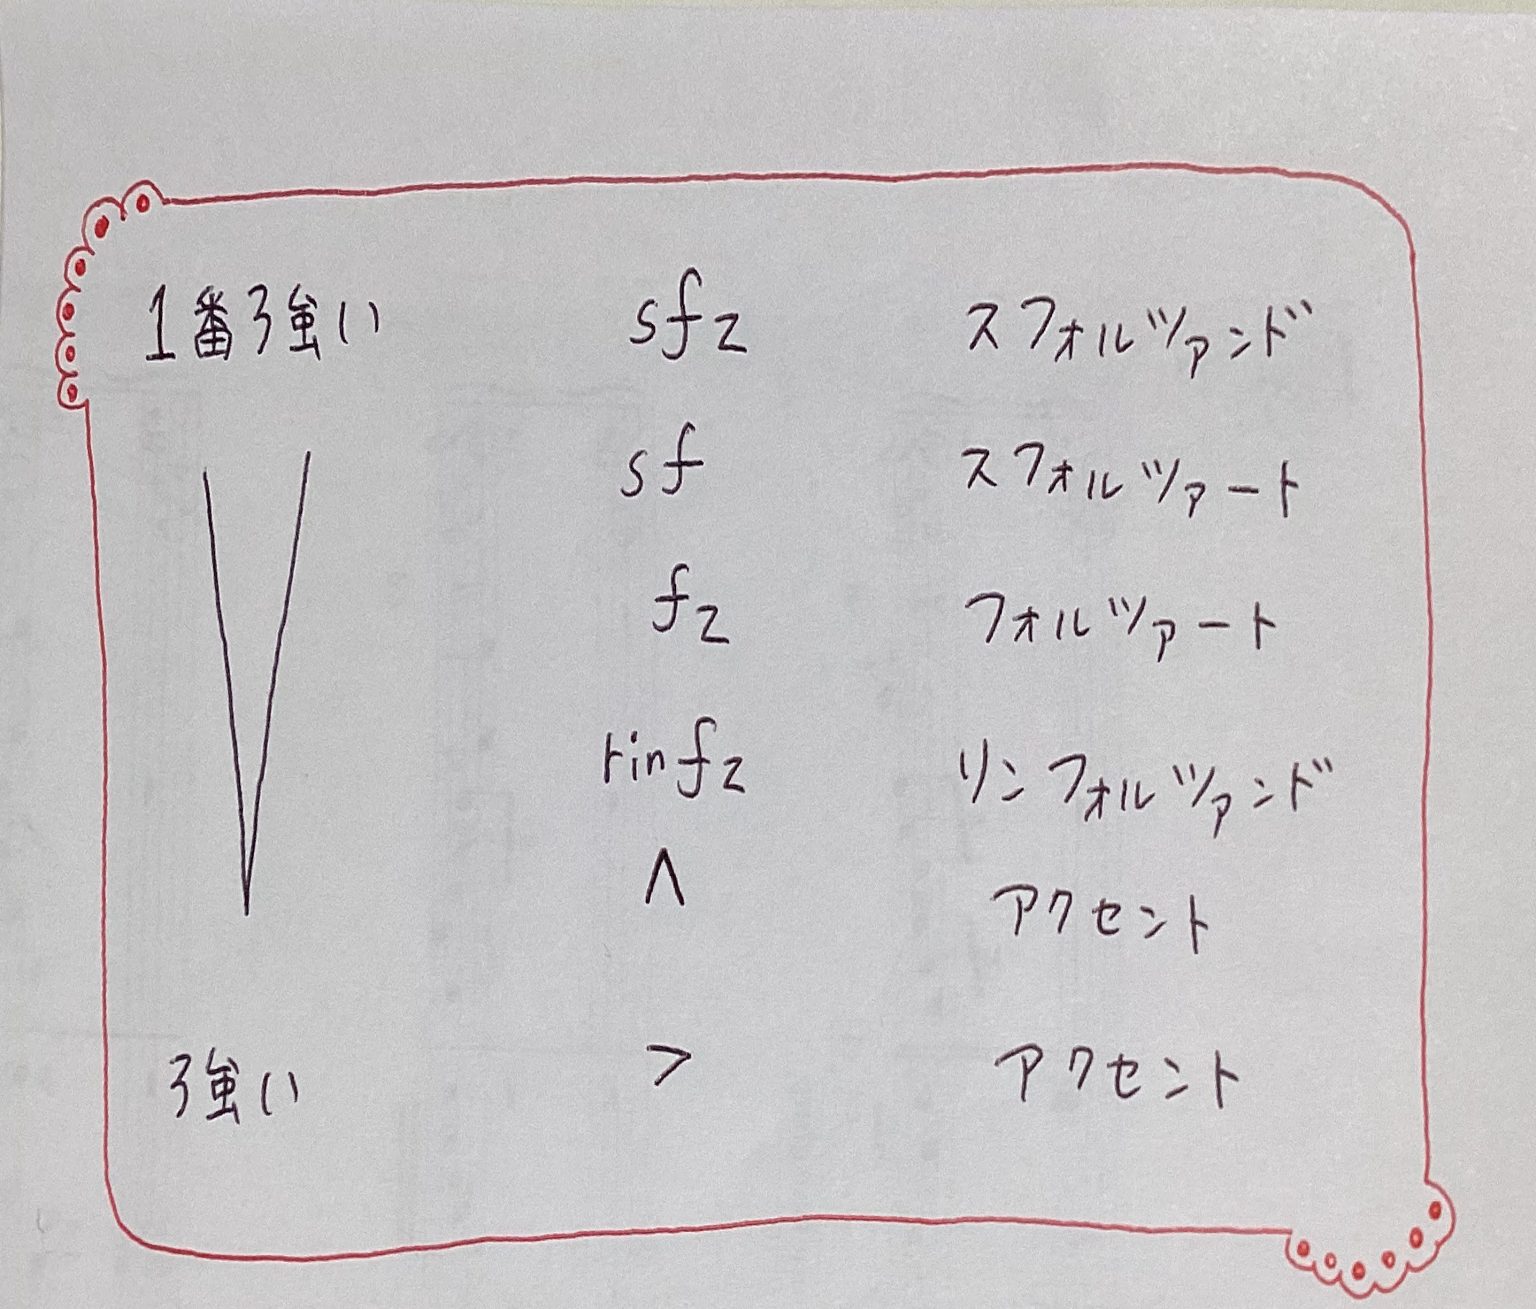 1番強い sfz スフォルツァンド
sf スフォルツァート
fz フォルツァート
rinfz リンフォルツァンド
∧ アクセント
強い > アクセント